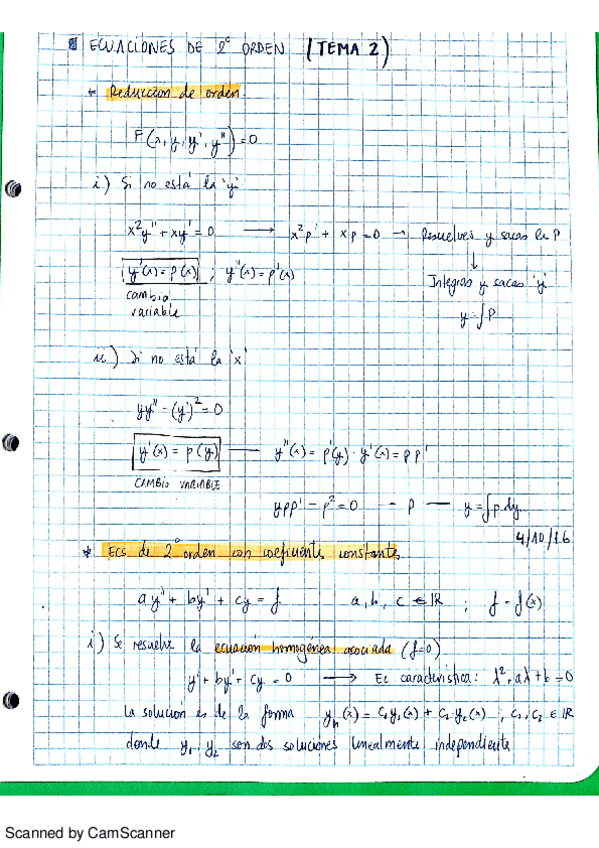 ECUACIONES DE 2º ORDEN (TEMA 2)
* Reducción de orden
F(x, y, y', y'') = 0
i) Si no está la 'y'
x²y'' + xy' = 0 → x²p' + xp = 0 → Resuelves y sacas la P
↓
y'(x) = p(x) ; y''(x) = p'(x)
Integras y sacas 'y'
cambio
variable
y = ∫P
ii) Si no está la 'x'
yy'' - (y')² = 0
y'(x) = p(y) — y''(x) = p'(y) · y'(x) = pp'
CAMBIO VARIABLE
ypp' - p² = 0 - p — y = ∫p dy
4/10/16
* Ecs de 2º orden con coeficientes constantes
ay'' + by' + cy = f a, b, c ∈ IR ; f = f(x)
i) Se resuelve la ecuación homogénea asociada (f=0)
y'' + by' + cy = 0 → Ec característica: λ² + aλ + b = 0
La solución es de la forma yₕ(x) = c₁y₁(x) + c₂y₂(x) , c₁, c₂ ∈ IR
donde y₁ y₂ son dos soluciones linealmente independiente
Scanned by CamScanner